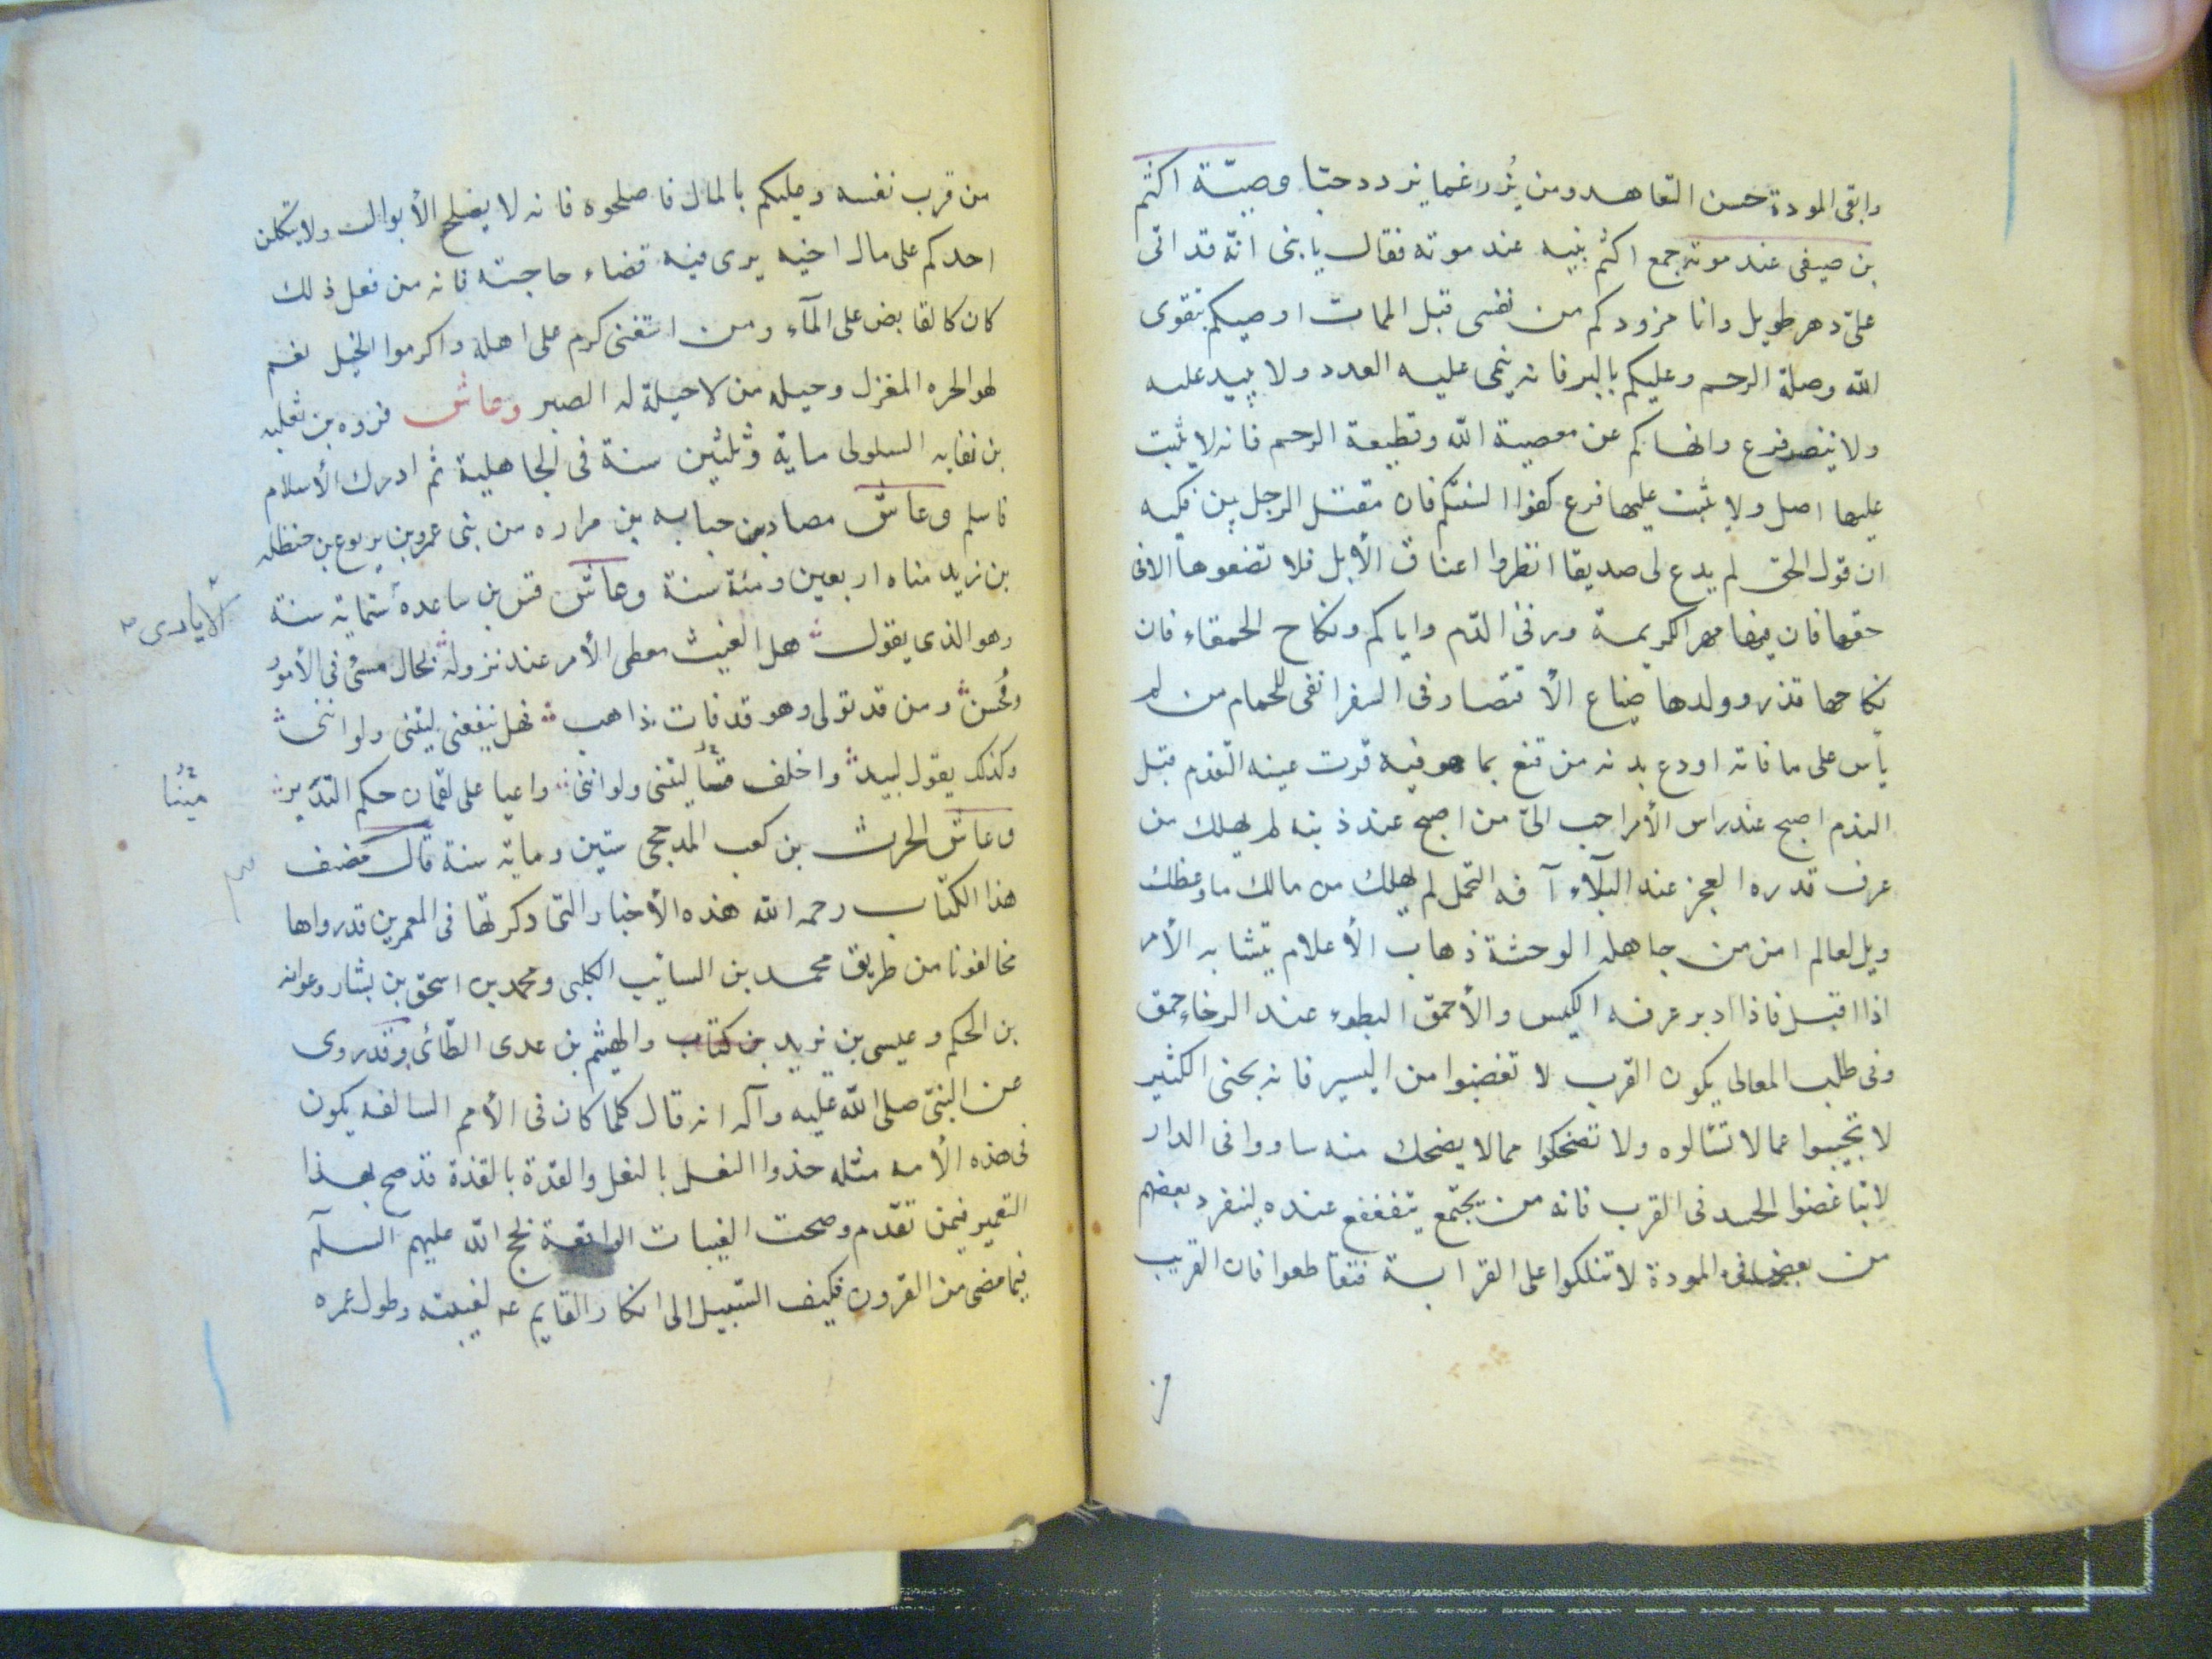 وابقى المودة حسن التعاهد ومن يزر غبا يزدد حبا وصيّة اكثم
بن صيفى عند موته جمع اكثم بنيه عند موته فقال يا بنى انه قد اتى
علىّ دهر طويل وانا مزودكم من نفسى قبل الممات اوصيكم بتقوى
الله وصلة الرحم وعليكم بالبر فانه ينمى عليه العدد ولا يبيد عليه
ولا يهتصر فرع وانهاكم عن معصية الله وقطيعة الرحم فانه لا يثبت
عليها اصل ولا يثبت عليها فرع كفوا السنتكم فان مقتل الرجل بين فكيه
ان قول الحق لم يدع لى صديقا انظروا اعناق الأبل فلا تضعوها الا فى
حقها فان فيها مهر الكريمة ورقئ الدّم واياكم ونكاح الحمقاء فان
نكاحها قذر وولدها ضياع الأقتصاد فى السفر ابقى للجمام من لم
يأس على ما فاته اودع بدنه من قنع بما هو فيه قرت عينه التقدم قبل
الندم اصبح عند راس الأمر احب الىّ من اصبح عند ذنبه لم يهلك من
عرف قدره العجز عند البلآء آفه التجمل لم يهلك من مالك ما وعظك
ويل لعالم امن من جاهله الوحشة ذهاب الأعلام يتشابه الأمر
اذا اقبل فاذا ادبر عرفه الكيس والأحمق البطوء عند الرخاء حمق
وفى طلب المعالى يكون القرب لا تغضبوا من اليسير فانه يجنى الكثير
لا تجيبوا عما لا تسئالوه ولا تضحكوا مما لا يضحك منه ساووا فى الدار
لا تباغضوا الحسد فى القرب فانه من يجتمع يتقعقع عنده لينفرد بعضهم
من بعض فى المودة لا تتكلوا على القرابة فتقاطعوا فان القريب
من قرب نفسه وعليكم بالمال فاصلحوه فانه لا يصلح الأبوال ولا يتكلن
احدكم على مال اخيه يرى فيه قضاء حاجته فانه من فعل ذلك
كان كالقابض على المآء ومن استغنى كرم على اهله واكرموا الخيل نعم
لهو الحره المغزل وحيله من لا حيلة له الصبر وعاش فروه بن ثعلبه
بن نفايه السلولى ماية وثلثين سنة فى الجاهلية ثم ادرك الأسلام
فاسلم وعاش مصاد بن جنابه بن مراره من بنى عمرو بن يربوع بن حنظله
بن زيد مناه اربعين ومئة سنة وعاش قس بن ساعده ستماية سنة
الأيادى
وهو الذى يقول هل الغيث معطى الأمر عند نزوله بحال مسئ فى الأمور
ومحسن ومن قد تولى وهو قد فات ذاهب فهل ينفعنى ليتنى ولو اننى
وكذلك يقول لبيد واخلف قسا ليتنى ولو اننى واعيا على لقمان حكم التدبر
وعاش الحرث بن كعب المدحجى ستين وماية سنة قال مصنف
هذا الكتاب رحمه الله هذه الأخبار التى ذكرتها فى المعمرين قد رواها
مخالفونا من طريق محمد بن السايب الكلبى ومحمد بن اسحق بن بشار وعوانه
بن الحكم وعيسى بن يزيد بن كتاب والهيثم بن عدى الطّائى وقد روى
عن النبىّ صلى الله عليه وآله انه قال كلما كان فى الأمم السالفه يكون
فى هذه الأمه مثله حذوا النعل بالنعل والقذة بالقذة قد صح بهذا
التعمير فيمن تقدّم وصحت الغيبات الواقعة لحجج الله عليهم السلم
فيما مضى من القرون فكيف السّبيل الى انكار القايم عه لغيبته وطول عمره